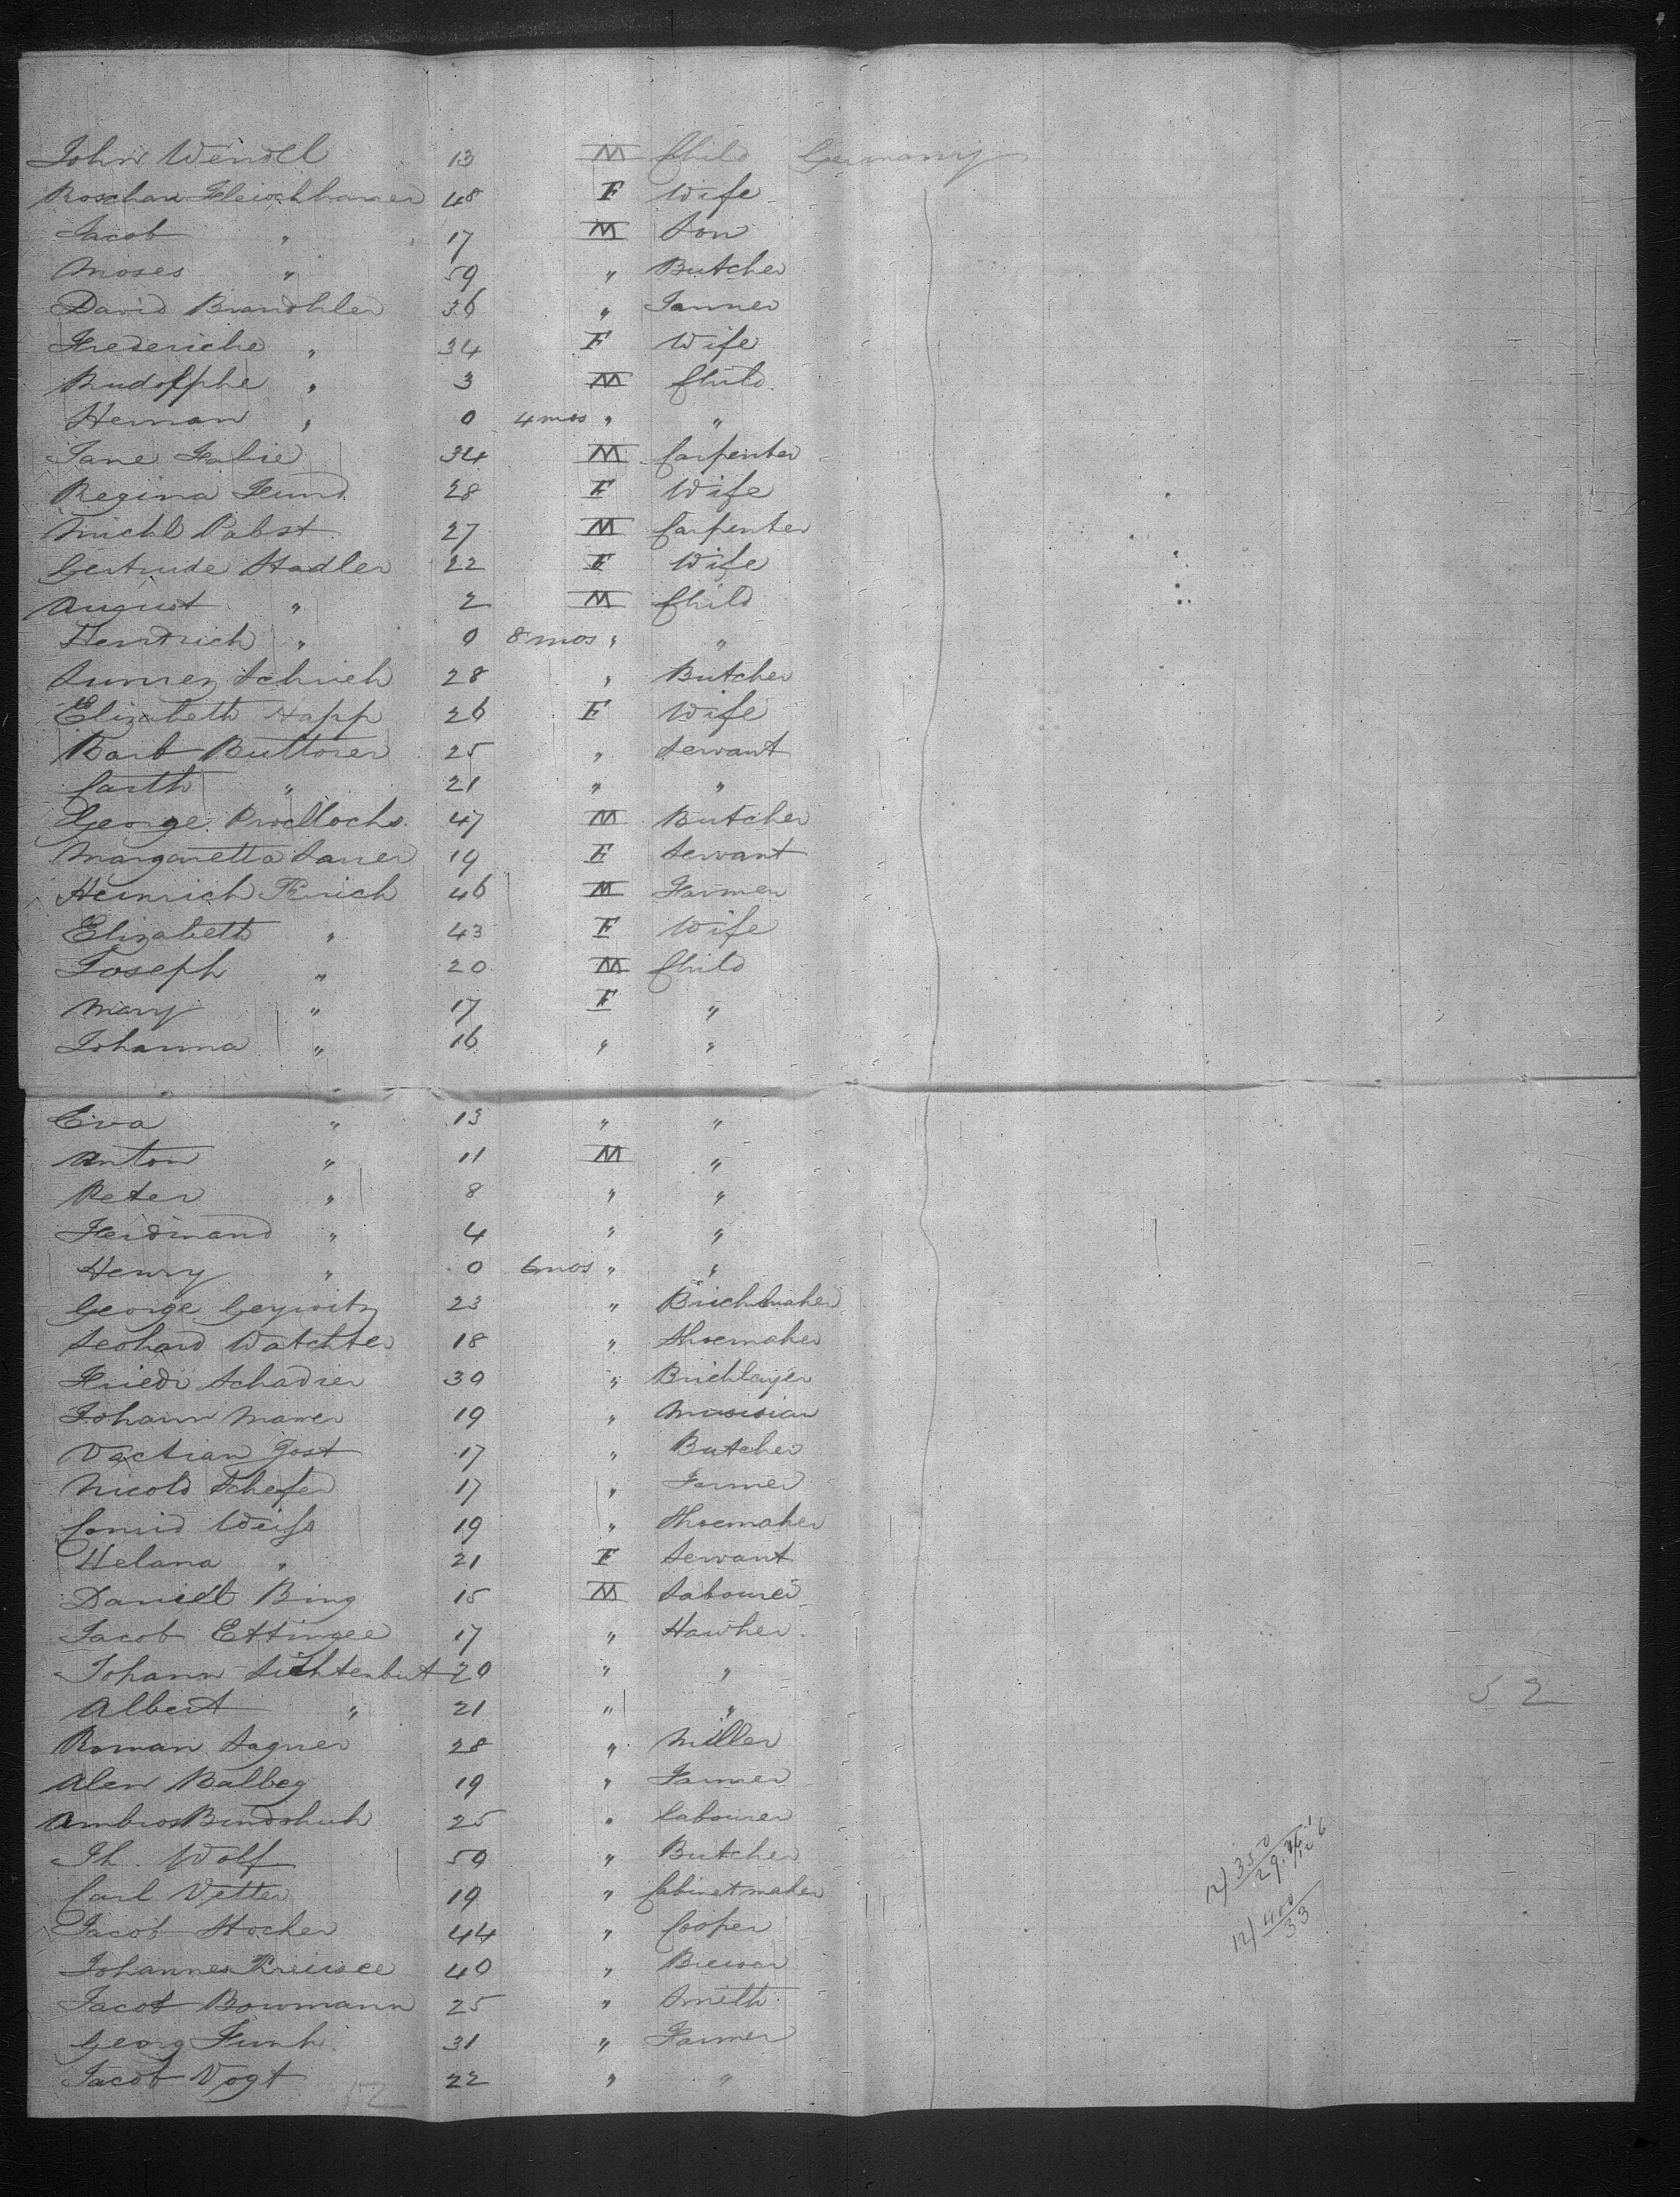 John Wendel 13 M Child Germany
Roschan Fleischhauer 48 F Wife
Jacob " 17 M Son
Moses " 59 " Butcher
David Brandhler 36 " Tanner
Frederiche " 34 F Wife
Rudolphe " 3 M Child
Heman " 0 4 mos " "
Jane Fabie 34 M Carpenter
Regina Fund 28 F Wife
Michl Pabst 27 M Carpenter
Gertrude Stadler 22 F Wife
August " 2 M Child
Hendrich " 0 8 mos " "
28 " Butcher
Elizabeth Happ 26 F Wife
Barb Buttorer 25 " Servant
Carth " 21 " "
George 47 M Butcher
Margaretta Sarrer 19 F Servant
Heinrich 46 M Farmer
Elizabeth " 43 F Wife
Joseph " 20 M Child
Mary " 17 F "
Johanna " 16 " "
Eva " 13 " "
Anton " 11 M "
Peter " 8 " "
Ferdinand " 4 " "
Henry " 0 6 mos " "
George 23 " Brickmaker
Leohard Watchter 18 " Shoemaker
Friedr Schadrer 30 " Bricklayer
Johann Mawer 19 " Musician
Vactian Jost 17 " Butcher
Nicolo Schefer 17 " Farmer
Conrid Weifs 19 " Shoemaker
Helana " 21 F Servant
Daniell Bing 15 M Labourer
Jacob Ettingee 17 " Hawker
Johann Lichtenbut 20 " "
Albert " 21 " "
Roman Sagner 28 " Miller
Alen Balbeg 19 " Farmer
Ambros Bindshuh 25 " Labourer
Jh. Wolf 50 " Butcher
Carl Vetter 19 " Cabinetmaker
Jacob Stocker 44 " Cooper
Johannes 40 " Brewer
Jacob Bowmann 25 " Smith
Georg Funk 31 " Farmer
Jacob Vogt 22 " "
52
12) 350
29.
12) 400
33
52